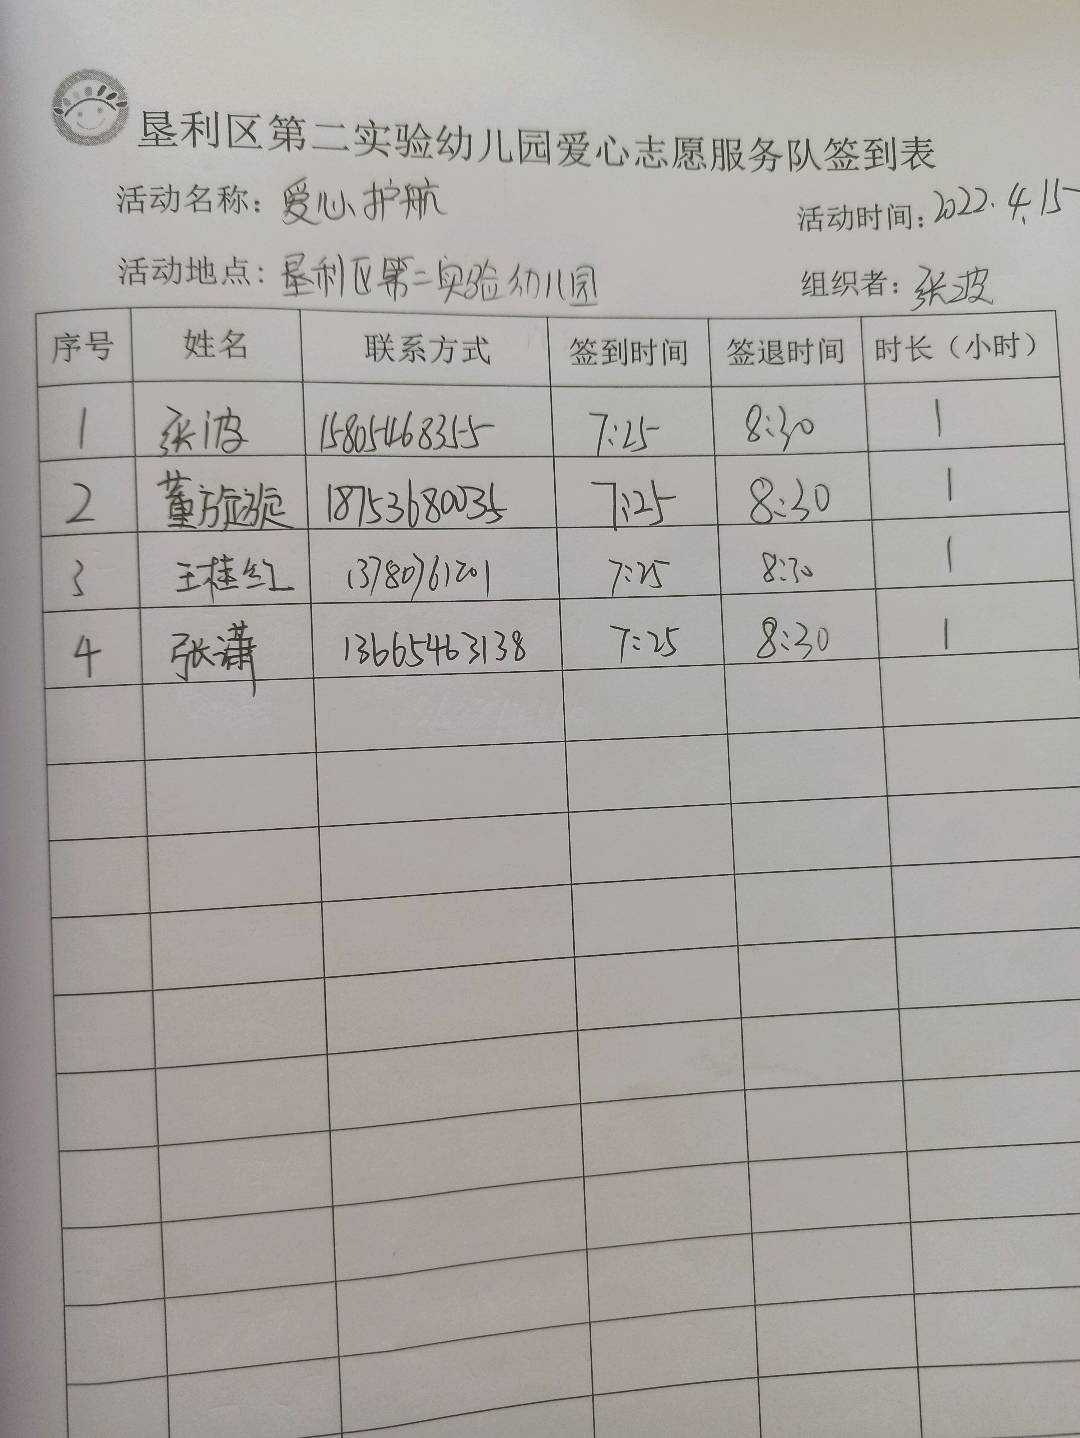 垦利区第二实验幼儿园爱心志愿服务队签到表
活动名称：爱心护航 活动时间：2022.4.15
活动地点：垦利区第二实验幼儿园 组织者：张波
序号 姓名 联系方式 签到时间 签退时间 时长（小时）
1 张波 15805468355 7:25 8:30 1
2 董旋旋 18753680035 7:25 8:30 1
3 王桂红 13780761201 7:25 8:30 1
4 张潇 13665463138 7:25 8:30 1